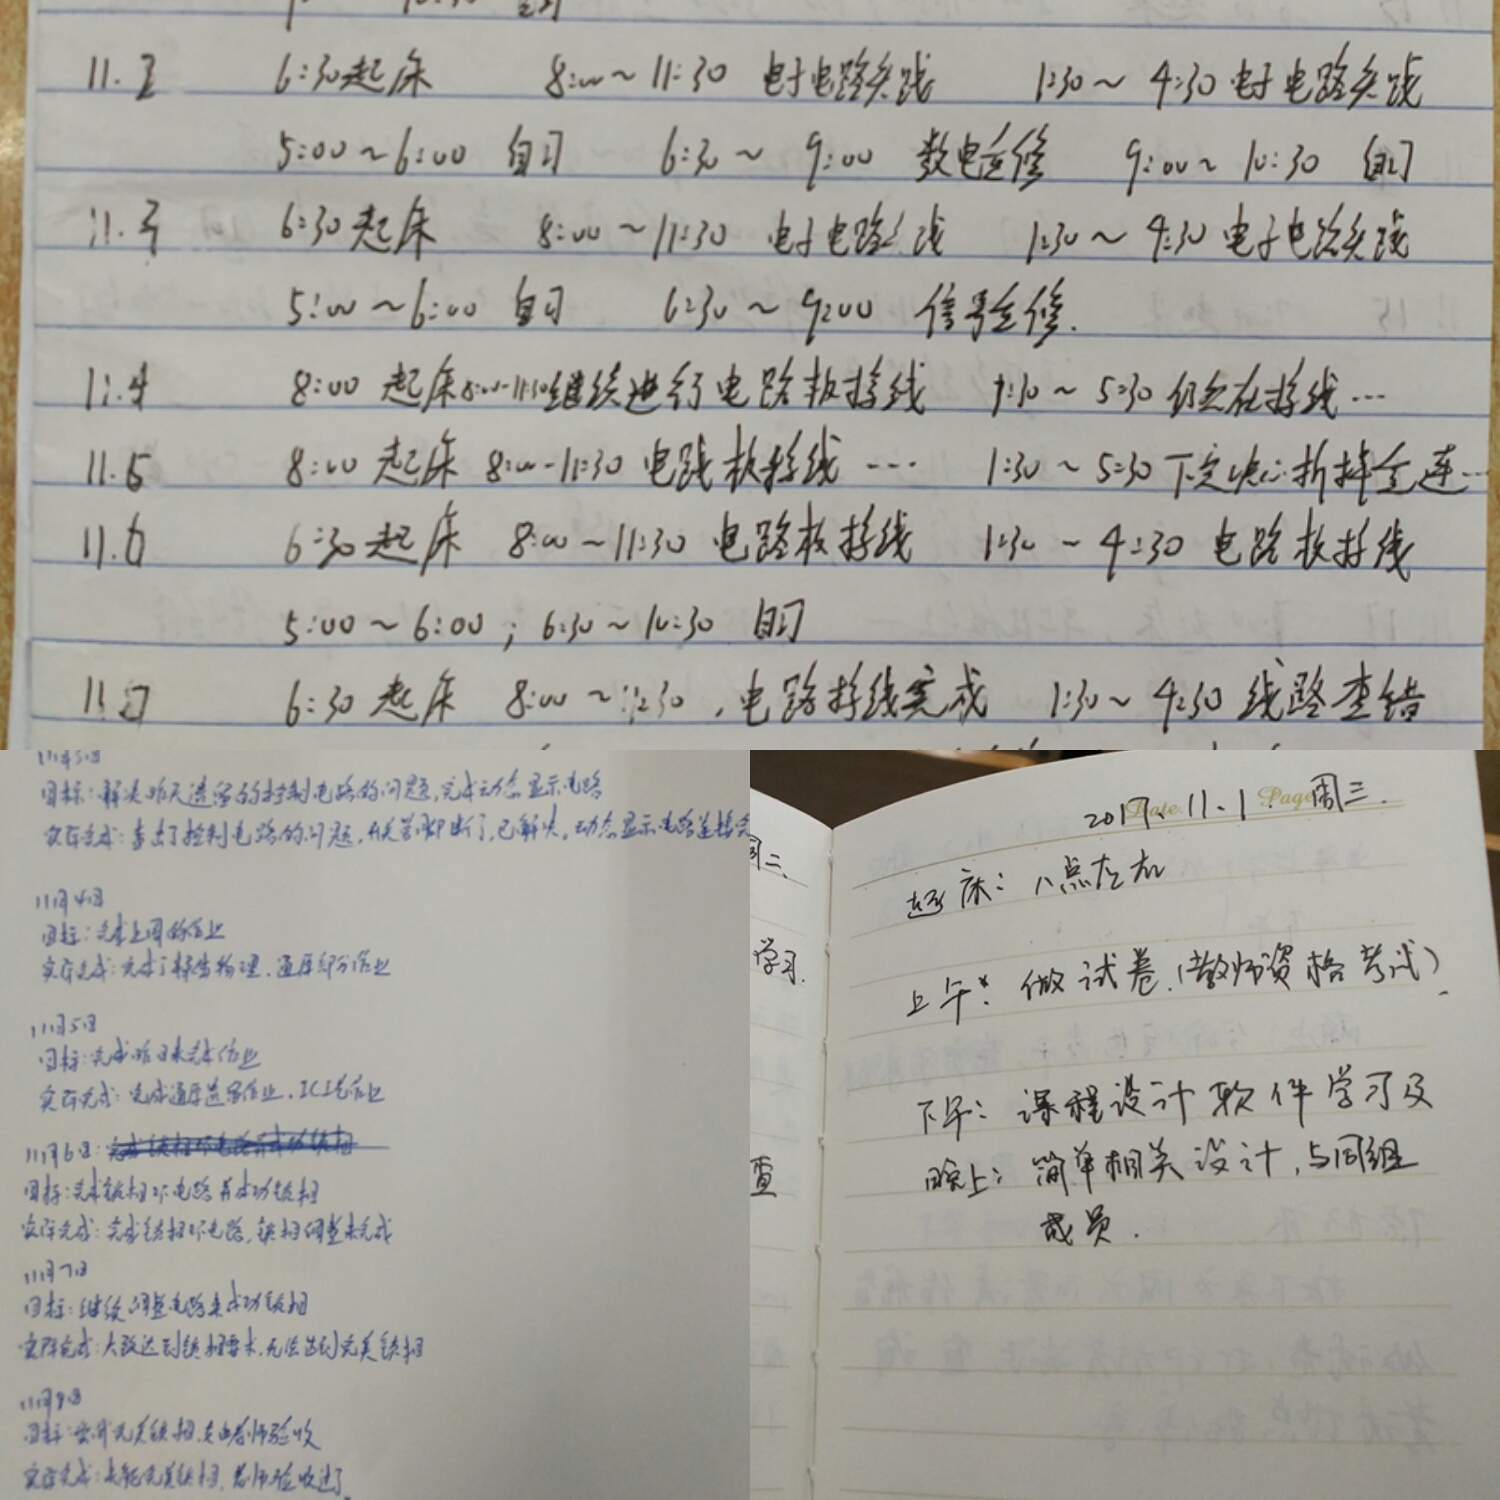 11.2 6:30起床 8:00~11:30 电子电路实践 1:30~4:30 电子电路实践
5:00~6:00 自习 6:30~9:00 数电选修 9:00~10:30 自习
11.3 6:30起床 8:00~11:30 电子电路实践 1:30~4:30 电子电路实践
5:00~6:00 自习 6:30~9:00 信号选修.
11.4 8:00 起床 8:00-11:30继续进行电路板接线 1:30~5:30 仍然在接线…
11.5 8:00 起床 8:00-11:30 电路板接线… 1:30~5:30 下定决心拆掉全连…
11.6 6:30起床 8:00~11:30 电路板接线 1:30~4:30 电路板接线
5:00~6:00; 6:30~10:30 自习
11.7 6:30起床 8:00~11:30, 电路接线完成 1:30~4:30 线路查错
11月3日
目标:解决昨天遗留的控制电路的问题,完成动态显示电路
实际完成:查出了控制电路的问题,开关管脚断了,已解决。动态显示电路连接完
11月4日
目标:完成上周的作业
实际完成:完成了 物理、通原部分作业
11月5日
目标:完成昨日未完成作业
实际完成:完成通原遗留作业、 作业
11月6日:
目标:完成锁相环电路并成功锁相
实际完成:完成锁相环电路,锁相调整未完成
11月7日
目标:继续调整电路来成功锁相
实际完成:大致达到锁相要求,无法达到完美锁相
11月8日
目标:实现完美锁相, 老师验收
实际完成:未能完美锁相,老师验收过了
周二、
学习.
查
Date. Page
2017. 11. 1 周三.
起床:八点左右
上午:做试卷.(教师资格考试).
下午:课程设计软件学习及
晚上:简单相关设计,与同组
成员.